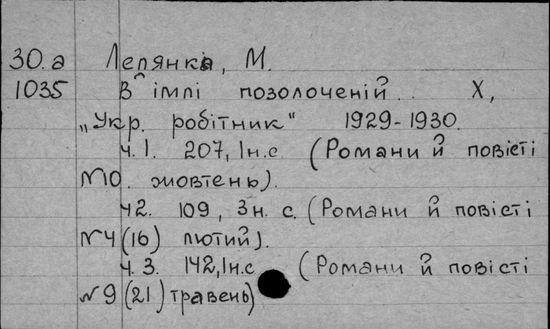 30.а Лепянка, М.
1035 В імлі позолоченій.. Х,
„Укр. робітник" 1929-1930.
ч.1. 207, 1н.с (Романи й повісті
№10. жовтень).
ч2. 109, 3н. с. (Романи й повісті
№4(16) лютий).
ч.3. 142, 1н.с (Романи й повісті
№9(21) травень)